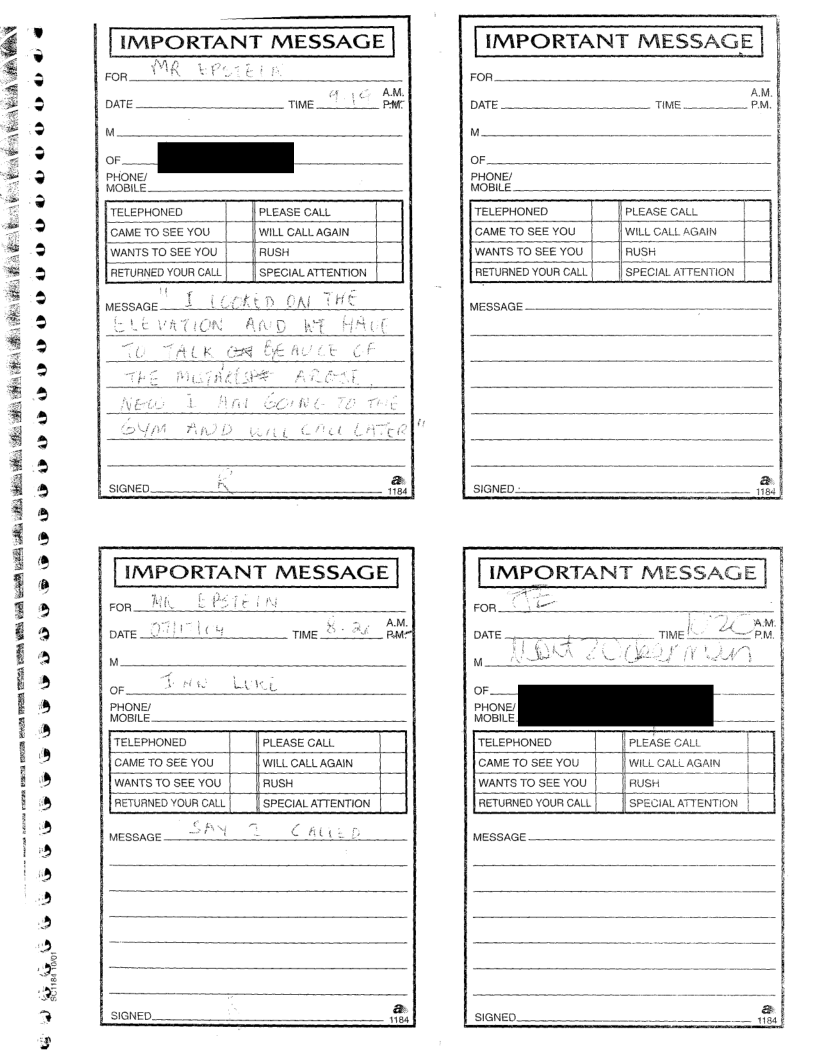 IMPORTANT MESSAGE
FOR MR EPSTEIN
A.M.
DATE TIME 9.19 P.M.
M
OF
PHONE/
MOBILE
TELEPHONED PLEASE CALL
CAME TO SEE YOU WILL CALL AGAIN
WANTS TO SEE YOU RUSH
RETURNED YOUR CALL SPECIAL ATTENTION
MESSAGE " I LOOKED ON THE
ELEVATION AND WE HAVE
TO TALK BEAUCE OF
THE AROSE.
NEW I AM GOING TO THE
GYM AND WILL CALL LATER"
SIGNED
1184
IMPORTANT MESSAGE
FOR
A.M.
DATE TIME P.M.
M
OF
PHONE/
MOBILE
TELEPHONED PLEASE CALL
CAME TO SEE YOU WILL CALL AGAIN
WANTS TO SEE YOU RUSH
RETURNED YOUR CALL SPECIAL ATTENTION
MESSAGE
SIGNED
1184
IMPORTANT MESSAGE
FOR MR EPSTEIN
A.M.
DATE TIME P.M.
M
OF
PHONE/
MOBILE
TELEPHONED PLEASE CALL
CAME TO SEE YOU WILL CALL AGAIN
WANTS TO SEE YOU RUSH
RETURNED YOUR CALL SPECIAL ATTENTION
MESSAGE SAY I CALLED
SIGNED
1184
IMPORTANT MESSAGE
FOR JE
A.M.
DATE TIME P.M.
M
OF
PHONE/
MOBILE
TELEPHONED PLEASE CALL
CAME TO SEE YOU WILL CALL AGAIN
WANTS TO SEE YOU RUSH
RETURNED YOUR CALL SPECIAL ATTENTION
MESSAGE
SIGNED
1184
SC1184 10/01